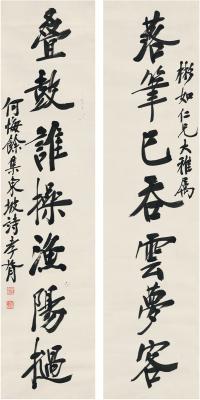 彬如仁兄大雅属
落筆已吞雲夢客
疊鼓誰操漁陽撾
何悔餘集東坡詩孝胥